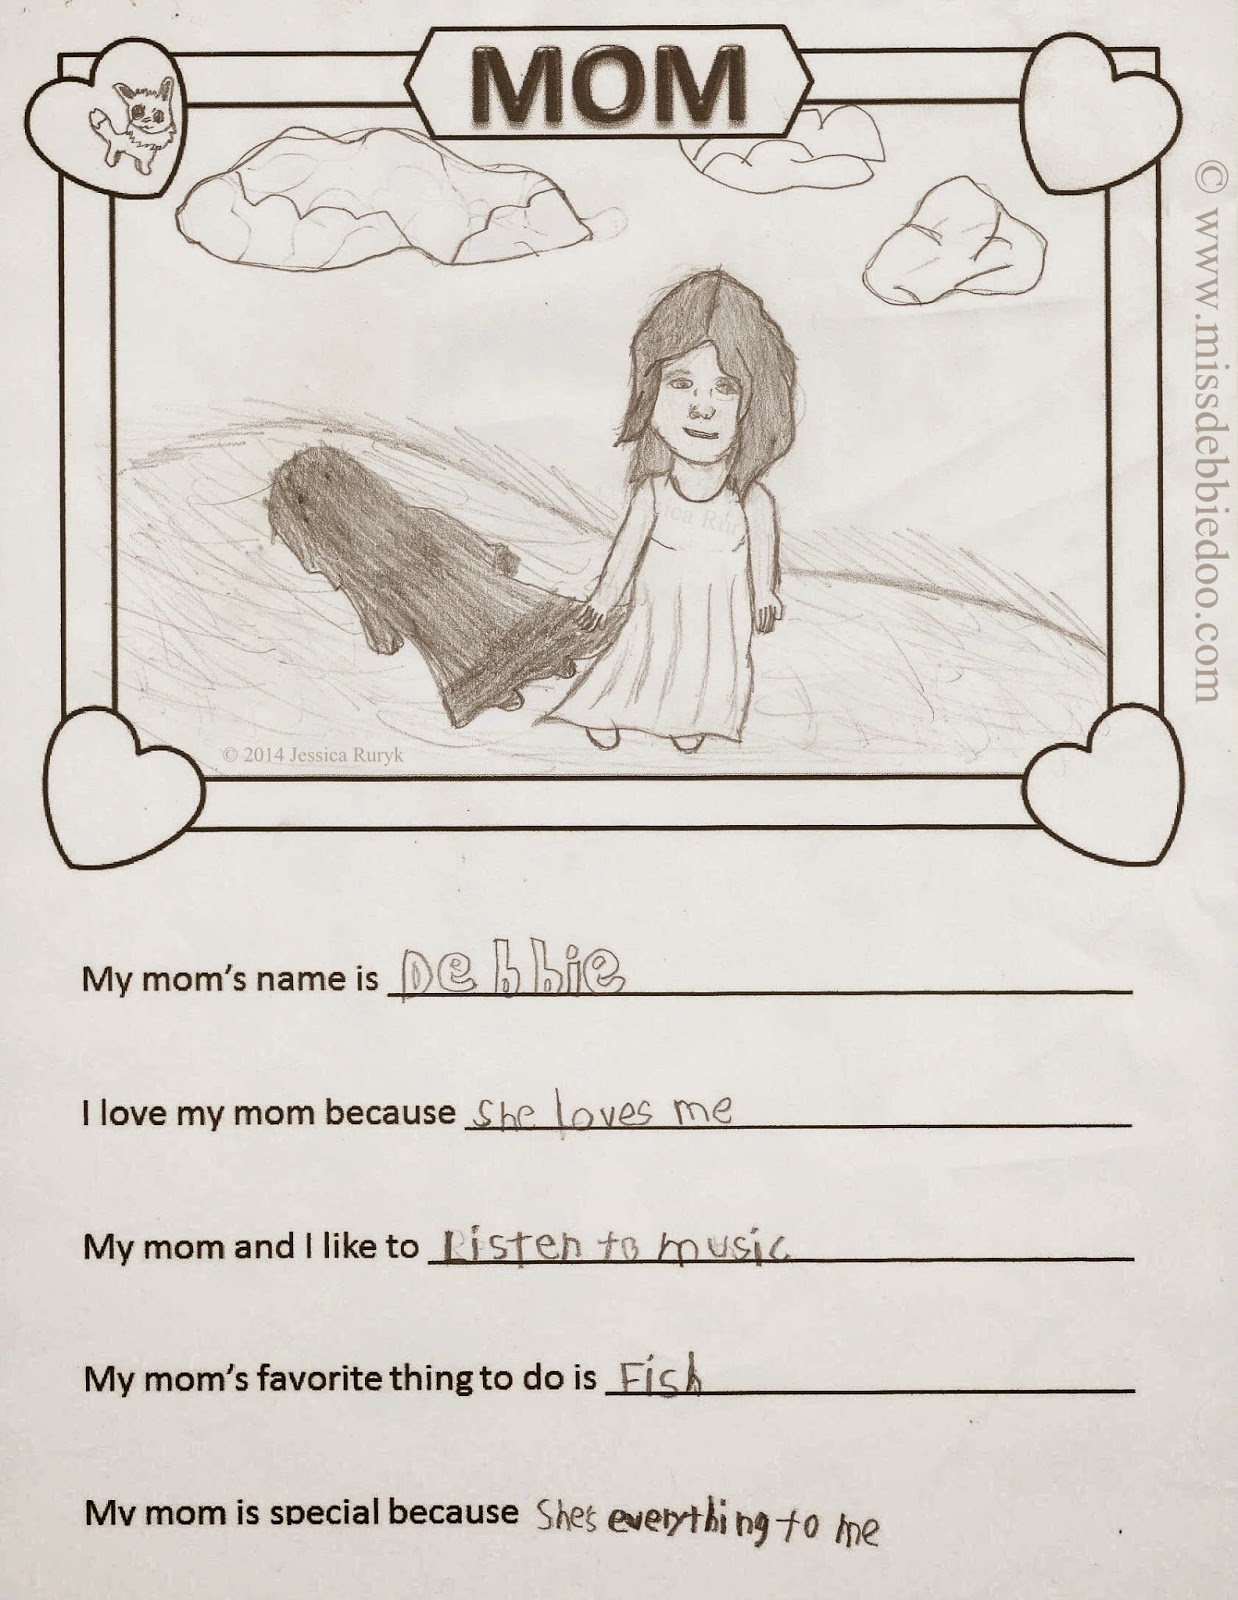 MOM
© www.missdebbiedoo.com
© 2014 Jessica Ruryk
My mom's name is Debbie
I love my mom because she loves me
My mom and I like to Listen to music
My mom's favorite thing to do is Fish
My mom is special because She's everything to me